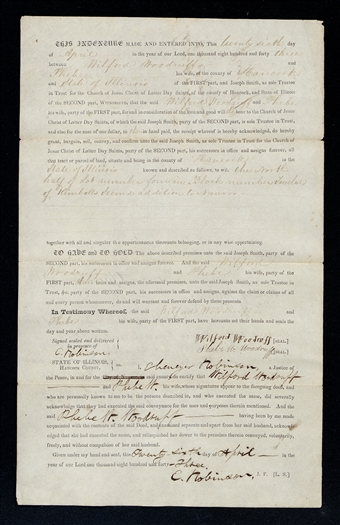 THIS INDENTURE MADE AND ENTERED INTO, This twenty sixth day
of April in the year of our Lord, one thousand eight hundred and forty three
between Wilford Woodruff and
Phebe his wife, of the county of Hancock
and State of Illinois party of the FIRST part, and Joseph Smith, as sole Trustee
in Trust for the Church of Jesus Christ of Latter Day Saints, of the county of Hancock, and State of Illinois
of the SECOND part, WITNESSETH, that the said Wilford Woodruff & Phebe
his wife, party of the FIRST part, for and in consideration of the love and good will to the Church of Jesus
Christ of Latter Day Saints, of which the said Joseph Smith, party of the SECOND part, is sole Trustee in Trust, and
also for the sum of one dollar, to in hand paid, the receipt whereof is hereby acknowledged, do hereby
grant, bargain, sell, convey, and confirm unto the said Joseph Smith, as sole Trustee in Trust for the Church of
Jesus Christ of Latter Day Saints, party of the SECOND part, his successors in office and assigns forever, all
that tract or parcel of land, situate and being in the county of Hancock
State of Illinois known and described as follows, to wit: the North
half of Lot number four in Block number twelve
of Kimballs second addition to Nauvoo
together with all and singular the appurtenances thereunto belonging, or in any wise appertaining.
TO HAVE and TO HOLD The above described premises unto the said Joseph Smith, party of the
SECOND part, his successors in office and assigns forever. And the said Wilford
Woodruff and Phebe his wife, party of the
FIRST part, heirs and assigns, the aforesaid premises, unto the said Joseph Smith, sole Trustee in
Trust, &c. party of the SECOND part, his successors in office and assigns, against the claim or claims of all
and every person whomsoever, do and will warrant and forever defend by these presents.
In Testimony Whereof, the said Wilford Woodruff and
Phebe his wife, party of the FIRST part, have hereunto set their hands and seals the
day and year above written.
Signed sealed and delivered
in presence of
E. Robinson
Wilford Woodruff [SEAL.]
Phebe W. Woodruff [SEAL.]
STATE OF ILLINOIS,
HANCOCK COUNTY,
Ebenezer Robinson a Justice of
the Peace, in and for the said county do certify that Wilford Woodruff
and Phebe W. his wife, whose signatures appear to the foregoing deed, and
who are personally known to me to be the persons described in, and who executed the same, did severally
acknowledge that they had executed the said conveyance for the uses and purposes therein mentioned. And the
said Phebe W. Woodruff having been by me made
acquainted with the contents of the said Deed, and examined separate and apart from her said husband, acknowledged
that she had executed the same, and relinquished her dower to the premises therein conveyed, voluntarily,
freely, and without compulsion of her said husband.
Given under my hand and seal, this Twenty Sixth day of April in the
year of our Lord one thousand eight hundred and forty-Three.
E. Robinson, J. P. [L. S.]